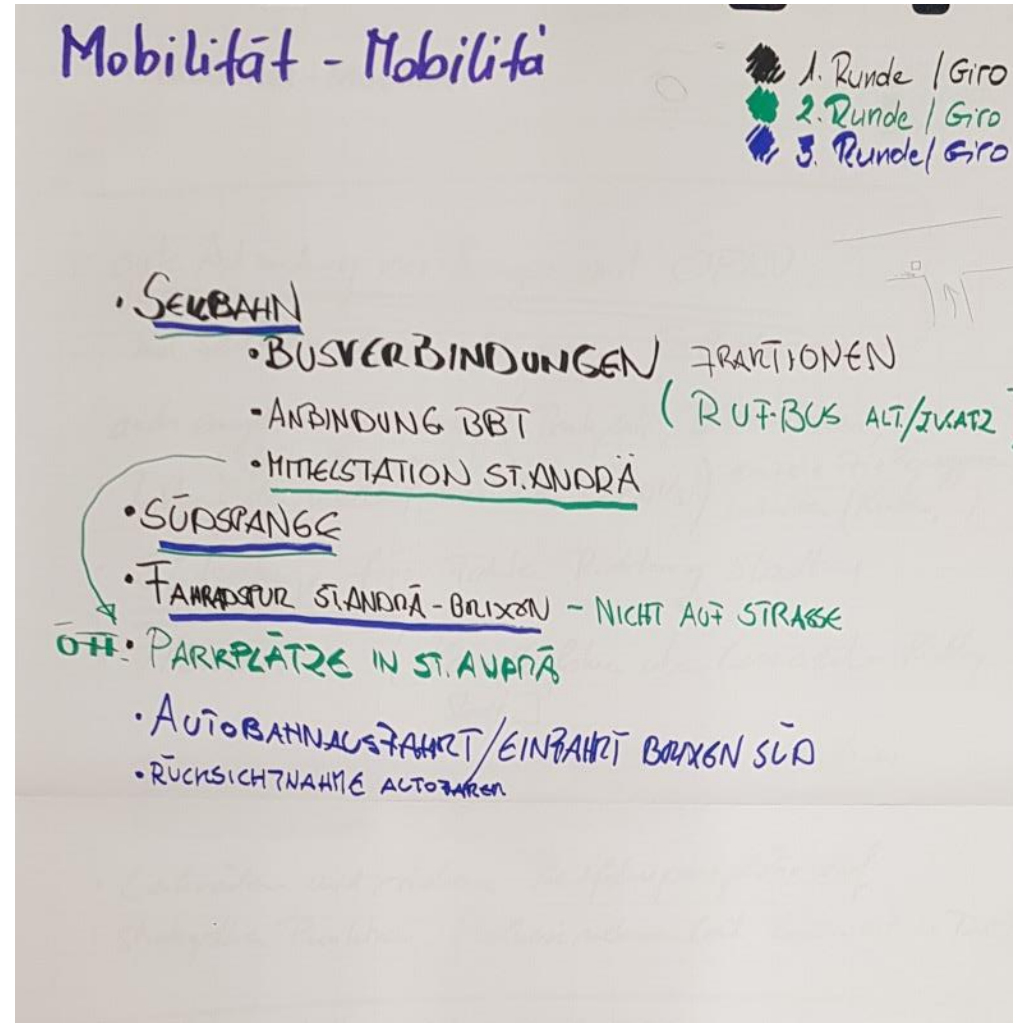 Mobilität - Mobilità
1. Runde / Giro
2. Runde / Giro
3. Runde / Giro
• SEILBAHN
• BUSVERBINDUNGEN FRAKTIONEN
(RUF-BUS ALT./ZUSATZ)
- ANBINDUNG BBT
• MITTELSTATION ST. ANDRÄ
• SÜDSPANGE
• FAHRADSPUR ST. ANDRÄ - BRIXEN - NICHT AUF STRASSE
ÖFF. • PARKPLÄTZE IN ST. ANDRÄ
• AUTOBAHNAUSFAHRT/EINFAHRT BRIXEN SÜD
• RÜCKSICHTNAHME AUTOFARER